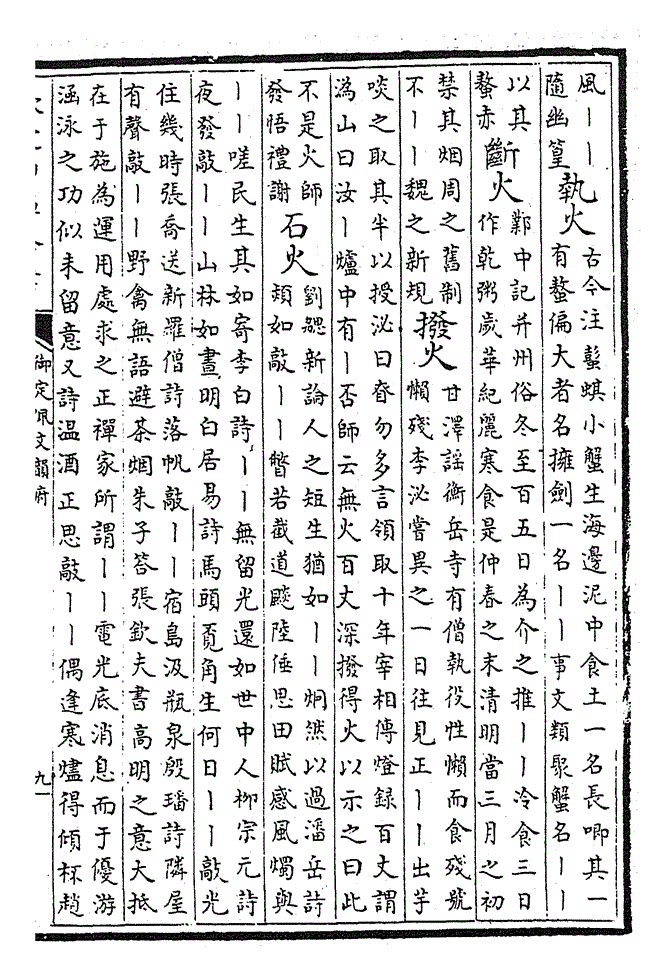 風丨丨
隨幽篁
執火
古今注蟚蜞小蟹生海邊泥中食土一名長唧其一
有螯偏大者名擁劍一名丨丨事文類聚蟹名丨丨
以其
螯赤
斷火
鄴中記并州俗冬至百五日為介之推丨丨冷食三日
作乾粥歲華紀麗寒食是仲春之末清明當三月之初
禁其烟周之舊制
不丨丨魏之新規
撥火
甘澤謡衡岳寺有僧執役性懶而食殘號
懶殘李泌嘗異之一日往見正丨丨出芋
啖之取其半以授泌曰眘勿多言領取十年宰相傳燈録百丈謂
溈山曰汝丨爐中有丨否師云無火百丈深撥得火以示之曰此
不是火師
發悟禮謝
石火
劉勰新論人之短生猶如丨丨炯然以過潘岳詩
頬如敲丨丨瞥若截道飇陸倕思田賦感風燭與
丨丨嗟民生其如寄李白詩丨丨無留光還如世中人柳宗元詩
夜發敲丨丨山林如晝明白居易詩馬頭覓角生何日丨丨敲光
住幾時張喬送新羅僧詩落帆敲丨丨宿島汲瓶泉殷璠詩隣屋
有聲敲丨丨野禽無語避茶烟朱子答張欽夫書高明之意大抵
在于施為運用處求之正禪家所謂丨丨電光底消息而于優游
涵泳之功似未留意又詩温酒正思敲丨丨偶逢寒燼得傾杯趙
御定佩文韻府
九一